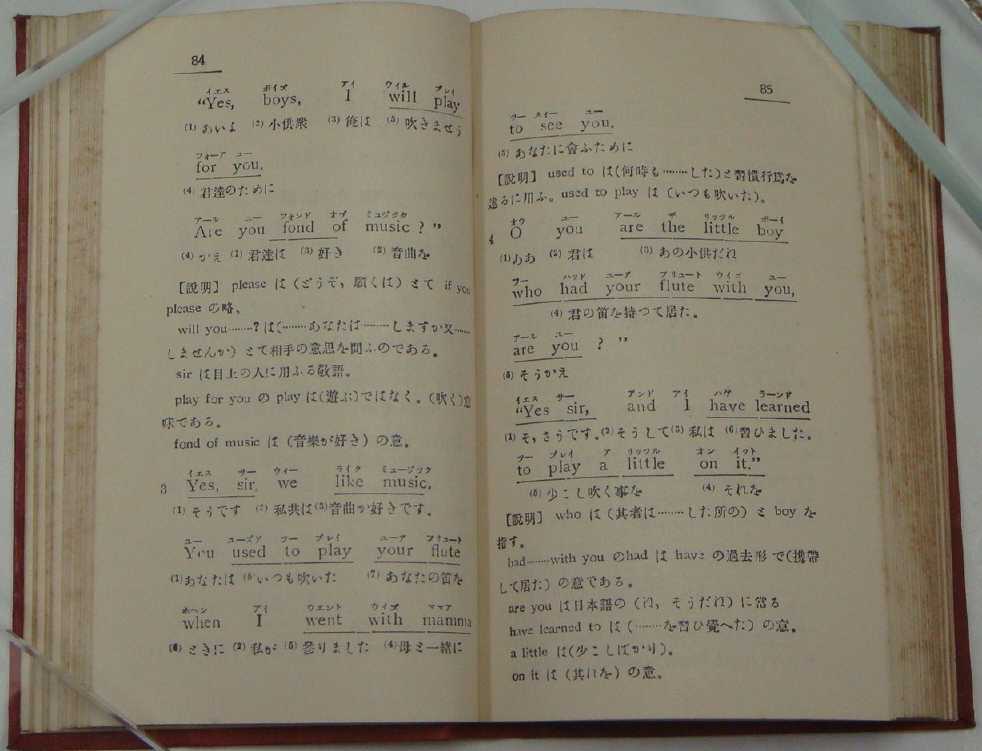 84
イエス ボイズ アイ ウイル プレイ
“Yes, boys, I will play
(1) あいよ (2) 小供衆 (3) 俺は (5) 吹きませう
フォーア ユー
for you.
(4) 君達のために
アール ユー フォンド オブ ミュジック
Are you fond of music ? ”
(4) かえ (1) 君達は (3) 好き (2) 音曲を
[説明] please は (どうぞ, 願くは) とて if you
please の略。
will you ……? は(……あなたは……しますか又……
しませんか) とて相手の意思を問ふのである。
sir は目上の人に用ふる敬語。
play for you の play は(遊ぶ)ではなく。(吹く)意
味である。
fond of music は (音樂が好き) の意。
イエス サー ウィー ライク ミュージック
3 Yes, sir, we like music.
(1) そうです (2) 私共は(3)音曲が好きです。
ユー ユーズア ツー プレイ ユーア フリュート
You used to play your flute
(1)あなたは (6)いつも吹いた (7) あなたの笛を
ホヘン アイ ウエント ウイズ ママア
when I went with mamma
(6) ときに (2) 私が (5) 參りました (4)母と一緒に
85
ツー スイー ユー
to see you.
(3) あなたに會ふために
[説明] used to は(何時も……した)と習慣行爲を
述るに用ふ。used to play は (いつも吹いた)。
オウ ユー アール ザ リッツル ボーイ
4 O you are the little boy
(1)ああ (2) 君は (3) あの小供だれ
フー ハッド ユーア フリュート ウイズ ユー
who had your flute with you,
(4) 君の笛を持つて居た。
アール ユー
are you ? ”
(5) そうかえ
イエス サー アンド アイ ハヴ ラーンド
“Yes sir, and I have learned
(1) そ,さうです。(2)そうして(3) 私は (6)習ひました。
ツー プレイ ア リッツル オン イット
to play a little on it.”
(5) 少こし吹く事を (4) それを
[説明] who は (其者は……した所の) と boy を
指す。
had……with you のhad は have の過去形で(携帶
して居た) の意である。
are you は日本語の (ね, そうだね) に當る
have learned to は (……を習ひ覺へた) の意。
a little は(少こしばかり)。
on it は (其れを) の意。